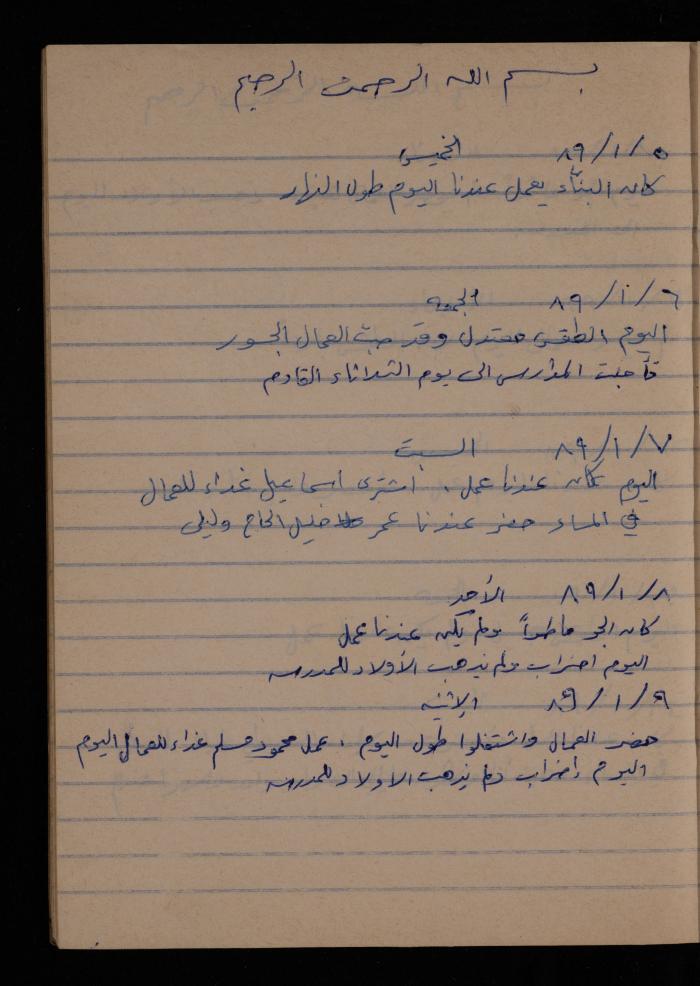 بسم الله الرحمن الرحيم
٥ / ١ / ٨٩ الخميس
كان البناء يعمل عندنا اليوم طول النهار
٦ / ١ / ٨٩ الجمعة
اليوم الطقس معتدل وقد صب العمال الجسور
تأجلت المدارس الى يوم الثلاثاء القادم
٧ / ١ / ٨٩ السبت
اليوم كان عندنا عمل . اشترى اسماعيل غداء للعمال
في المساء حضر عندنا عمر خليل الحاج وليلى
٨ / ١ / ٨٩ الأحد
كان الجو ماطراً ولم يكن عندنا عمل
اليوم اضراب ولم يذهب الأولاد للمدرسه
٩ / ١ / ٨٩ الإثنين
حضر العمال واشتغلوا طول اليوم . عمل محمود مسلم غداء للعمال اليوم
اليوم إضراب ولم يذهب الاولاد للمدرسه